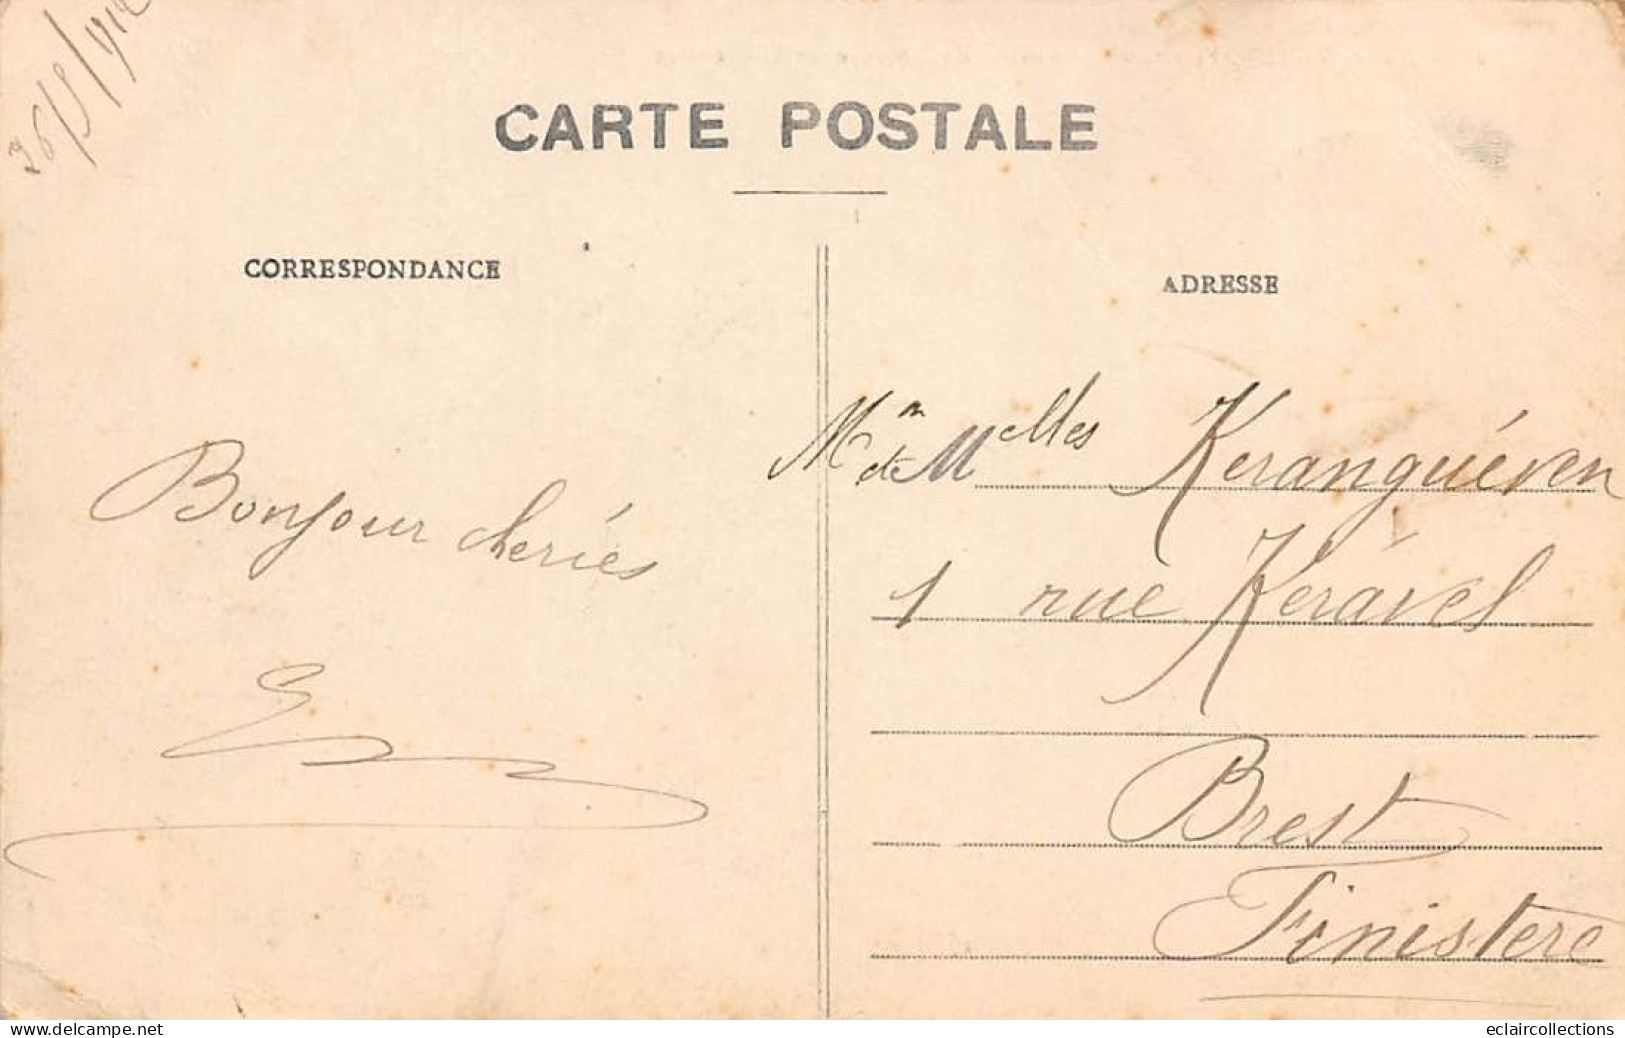 CARTE POSTALE
CORRESPONDANCE
ADRESSE
Bonjour cheriés
Mm et Melles Keranguéven
1 rue Keravel
Brest
Finistere
www.delcampe.net
eclaircollections